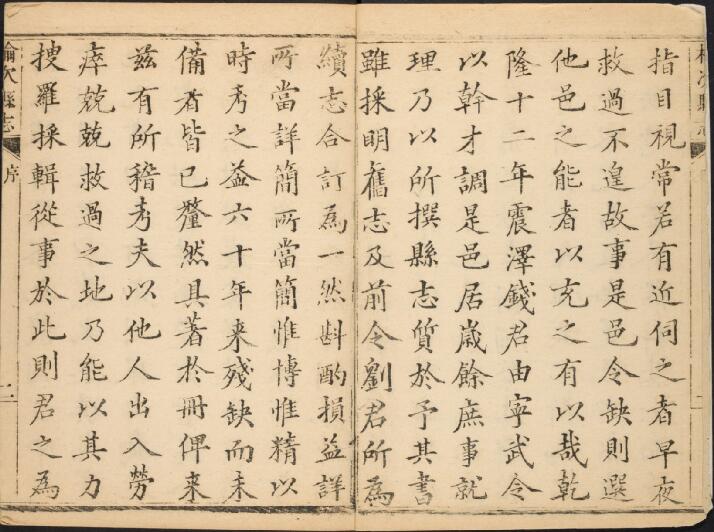 指目視常若有近伺之者早夜
救過不遑故事是邑令缺則選
他邑之能者以充之有以哉乾
隆十二年震澤錢君由寧武令
以幹才調是邑居歲餘庶事就
理乃以所撰縣志質於予其書
雖採明舊志及前令劉君所為
續志合訂為一然斟酌損益詳
所當詳簡所當簡惟博惟精以
時考之益六十年来殘缺而未
備者皆已釐然具著於冊俾来
茲有所稽考夫以他人出入勞
瘁兢兢救過之地乃能以其力
搜羅採輯從事於此則君之為
榆次縣志
序
二